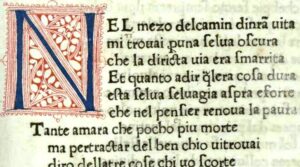 NEL mezo delcamin dinr̃a uita
mi trouai ꝑuna selua oscura
che la diricta uia era smarrita
Et quanto adir q̃lera cosa dura
esta selua seluagia aspra eforte
che nel pensier renoua la paura
Tante amara che pocho piu morte
ma pertractar del ben chio uitrouai
diro dellatre cose chi uo scorte